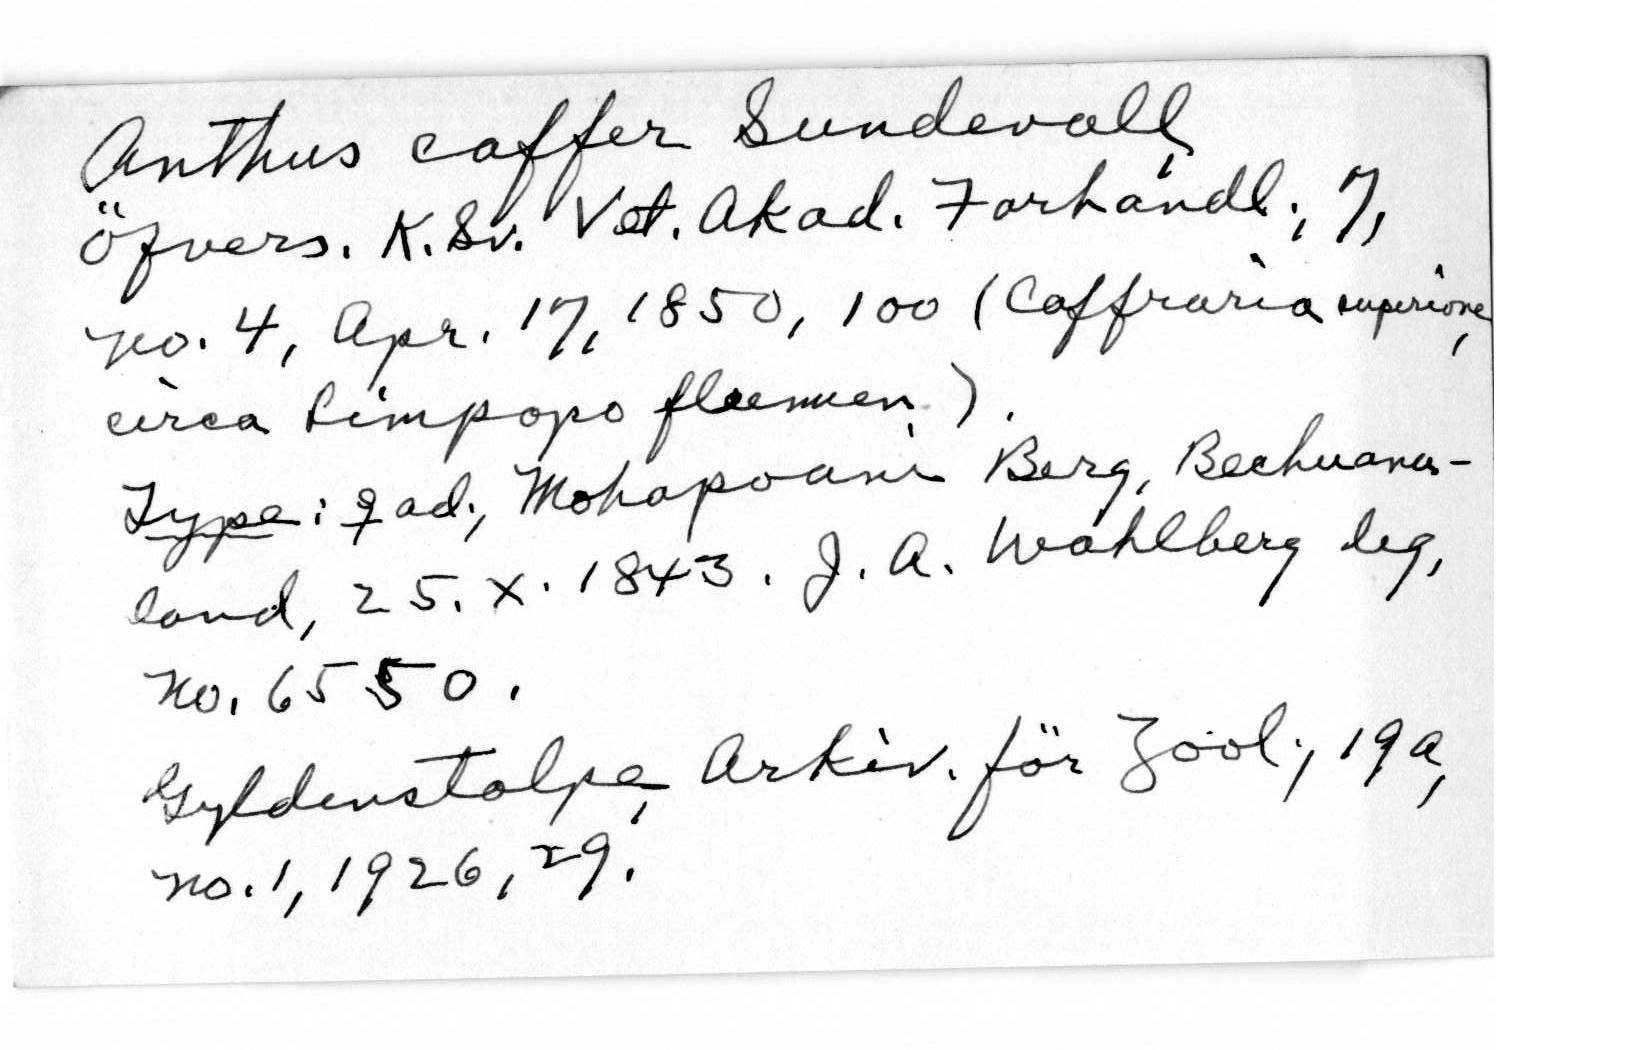 Anthus caffer Sundevall,
Öfvers. K. Sv. Vet. Akad. Forhandl., 7,
no. 4, Apr. 17, 1850, 100 (Caffraria superiore,
circa Limpopo flumen).
Type: ♀ ad., Mohapoani Berg, Bechuana-
land, 25. X. 1843. J. A. Wahlberg leg,
no. 6550.
Gyldenstolpe, Arkiv. för Zool., 19a,
no. 1, 1926, 29.